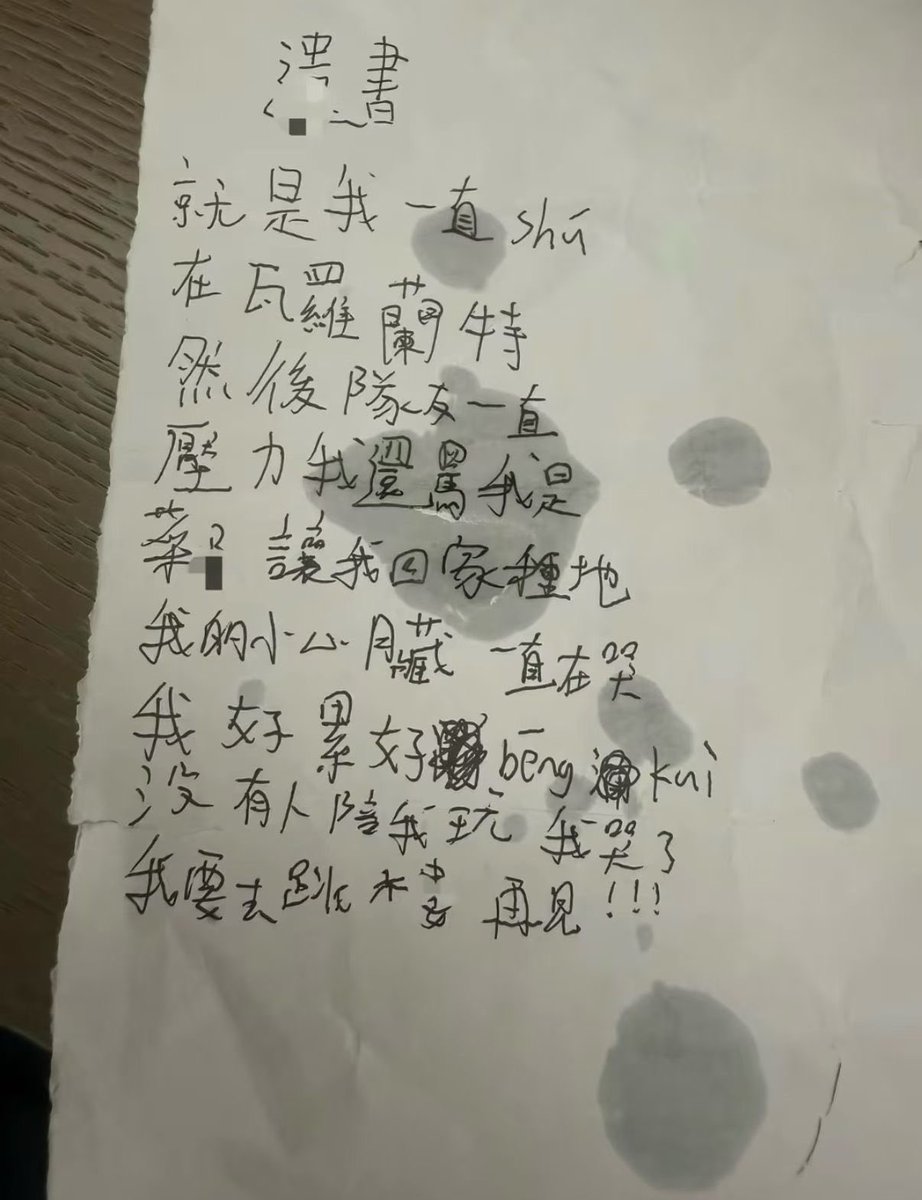 遺書
就是我一直shū
在瓦羅蘭特
然後隊友一直
壓力我還罵我是
菜 讓我回家種地
我的小心臟 一直在哭
我好累好 bēng kuì
沒有人陪我玩 我哭了
我要去跳 再見!!!